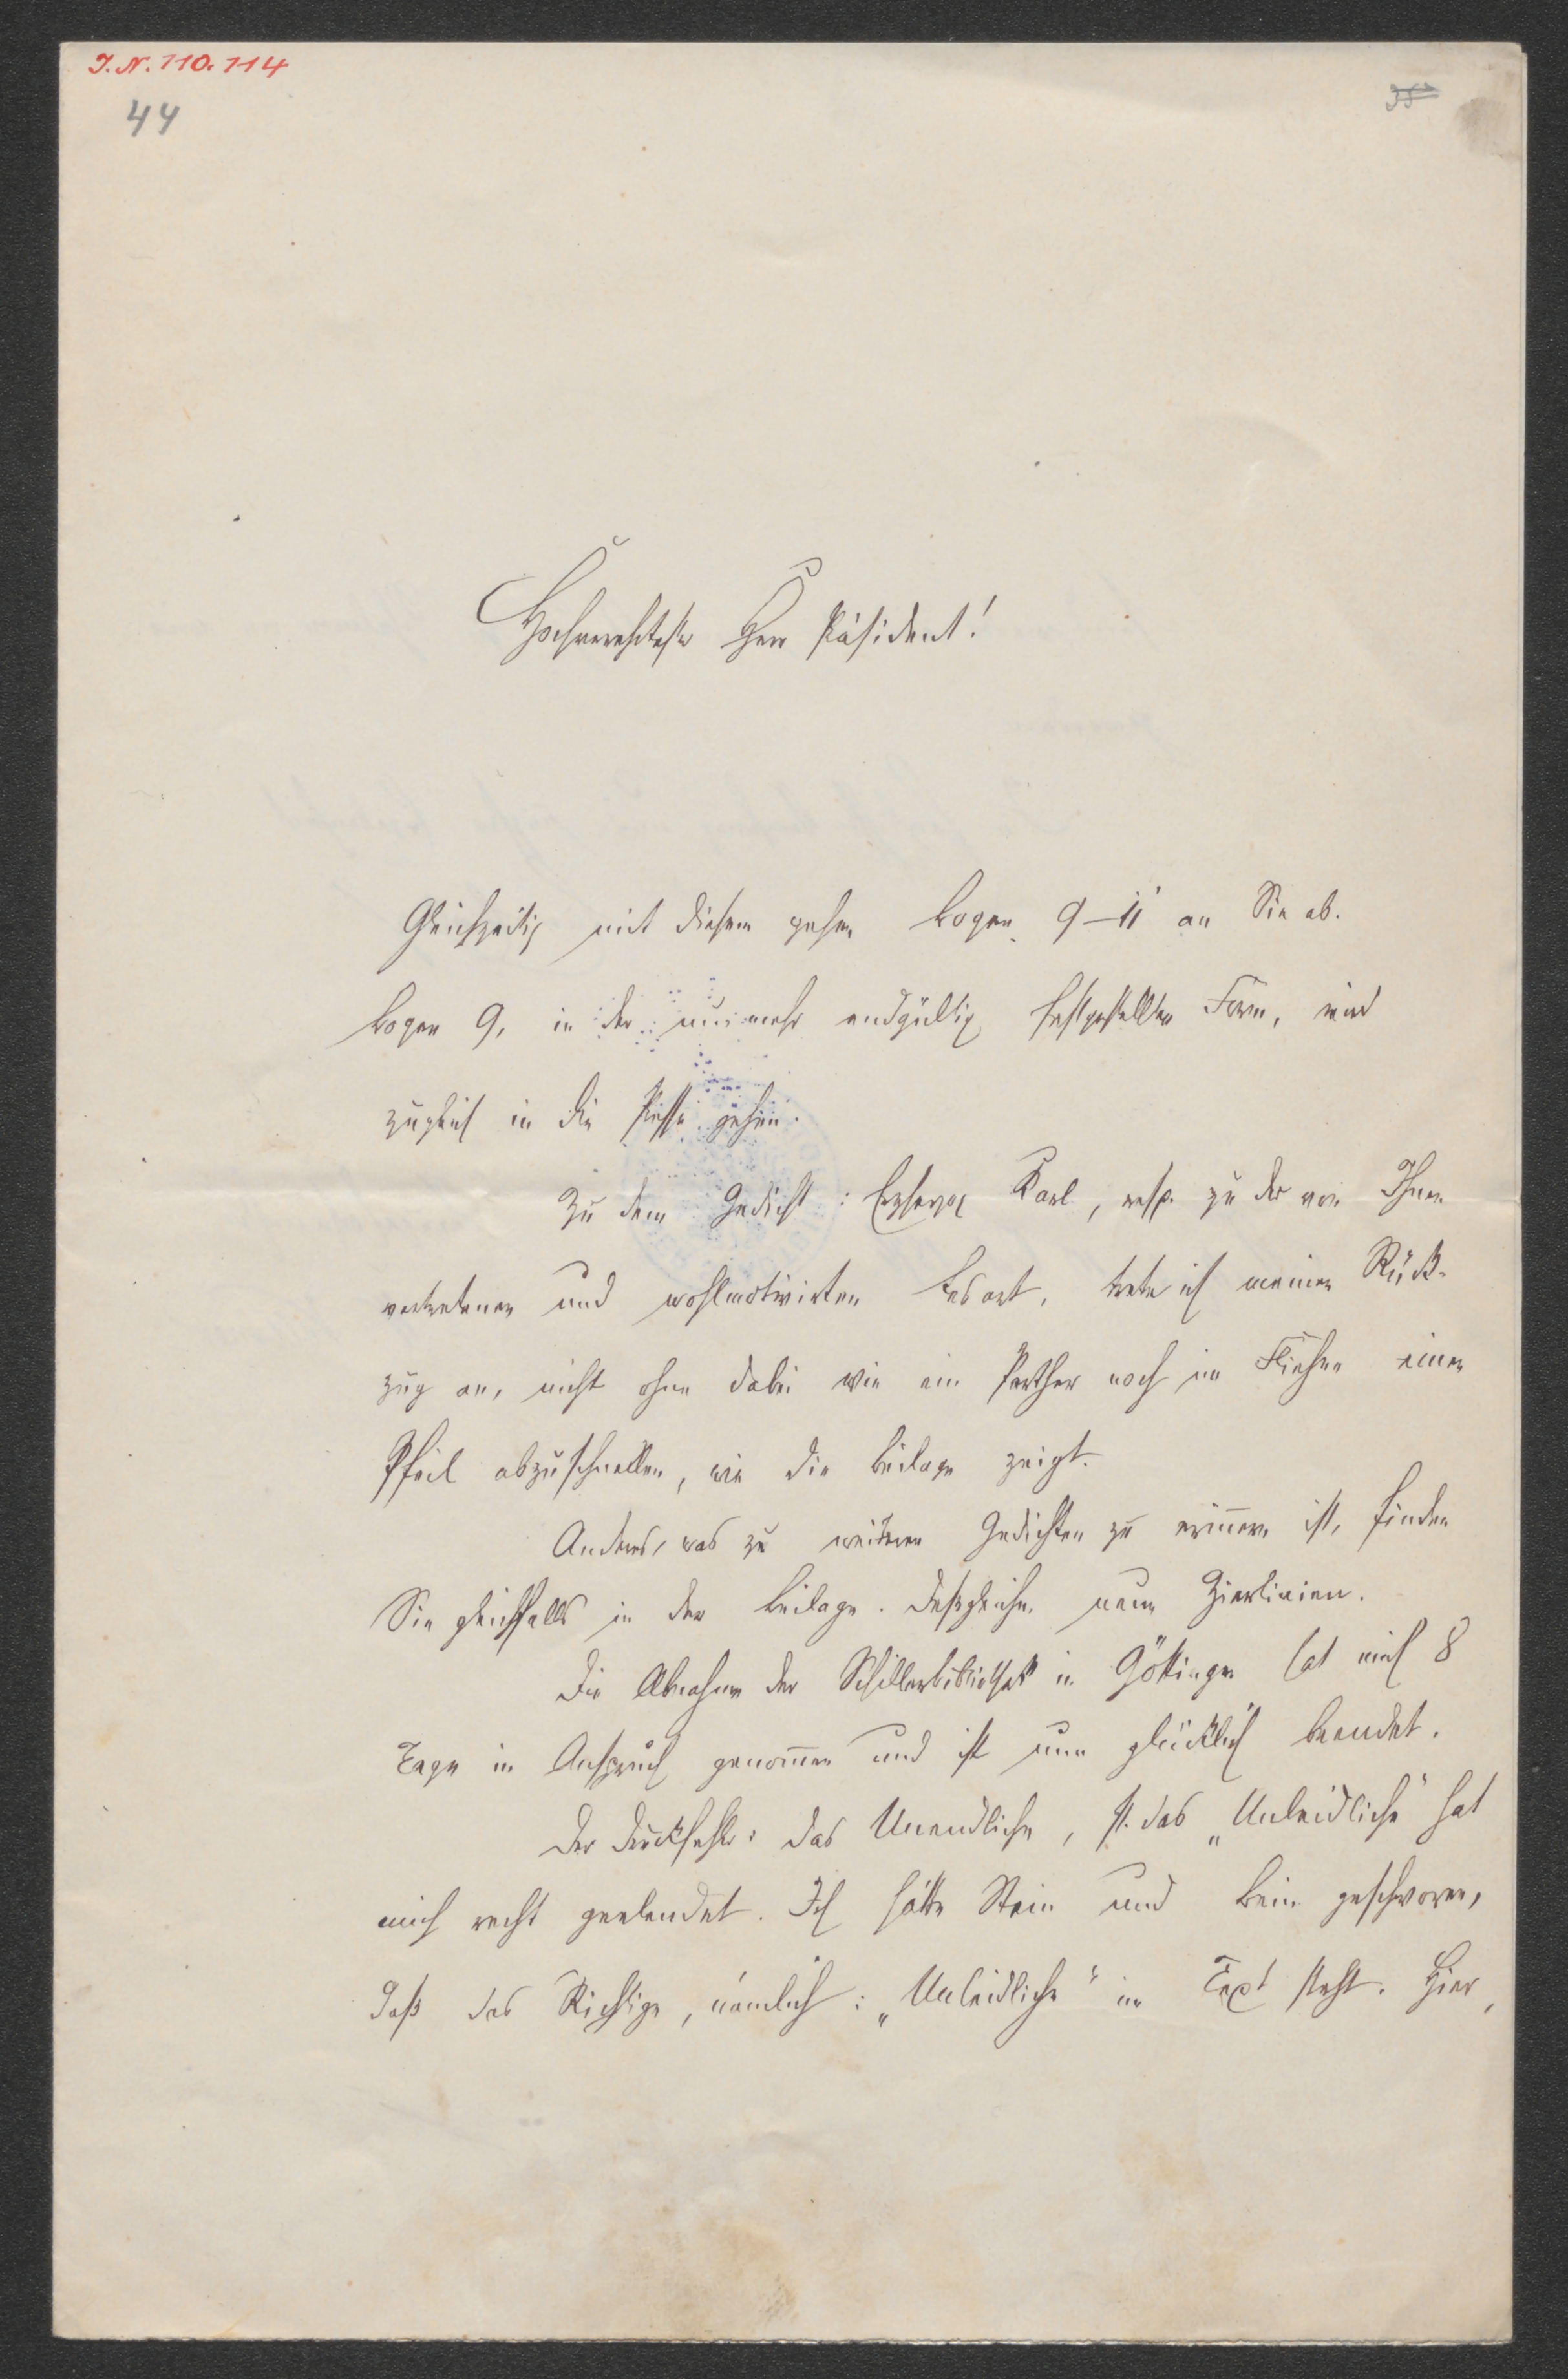 I. N. 110.114
44
Hochverehrtester Herr Präsident!
Gleichzeitig mit diesem gehen Bogen 9–11 an Sie ab.
Bogen 9, in der nunmehr endgültig festgestellten Form, wird
zugleich in die Presse gehen.
Zu dem Gedicht: Erzherzog Karl, resp. zu der von Ihnen
vertretenen und wohlmotivirten Lesart, trete ich meinen Rück-
zug an, nicht ohne dabei wie ein Parther noch im Fliehen einen
Pfeil abzuschnellen, wie die Beilage zeigt.
Anderes, was zu weiteren Gedichten zu erinnern ist, finden
Sie gleichfalls in der Beilage. Deßgleichen neue Zierlinien.
Die Abnahme der Schillerbibliothek in Göttingen hat mich 8
Tage in Anspruch genommen und ist nun glücklich beendet.
Der Druckfehler: das Unendliche, st. das „Unleidliche“ hat
mich recht geelendet. Ich hätte Stein und Bein geschworen,
daß das Richtige, nämlich: „Unleidliche“ im Text steht. Hier,